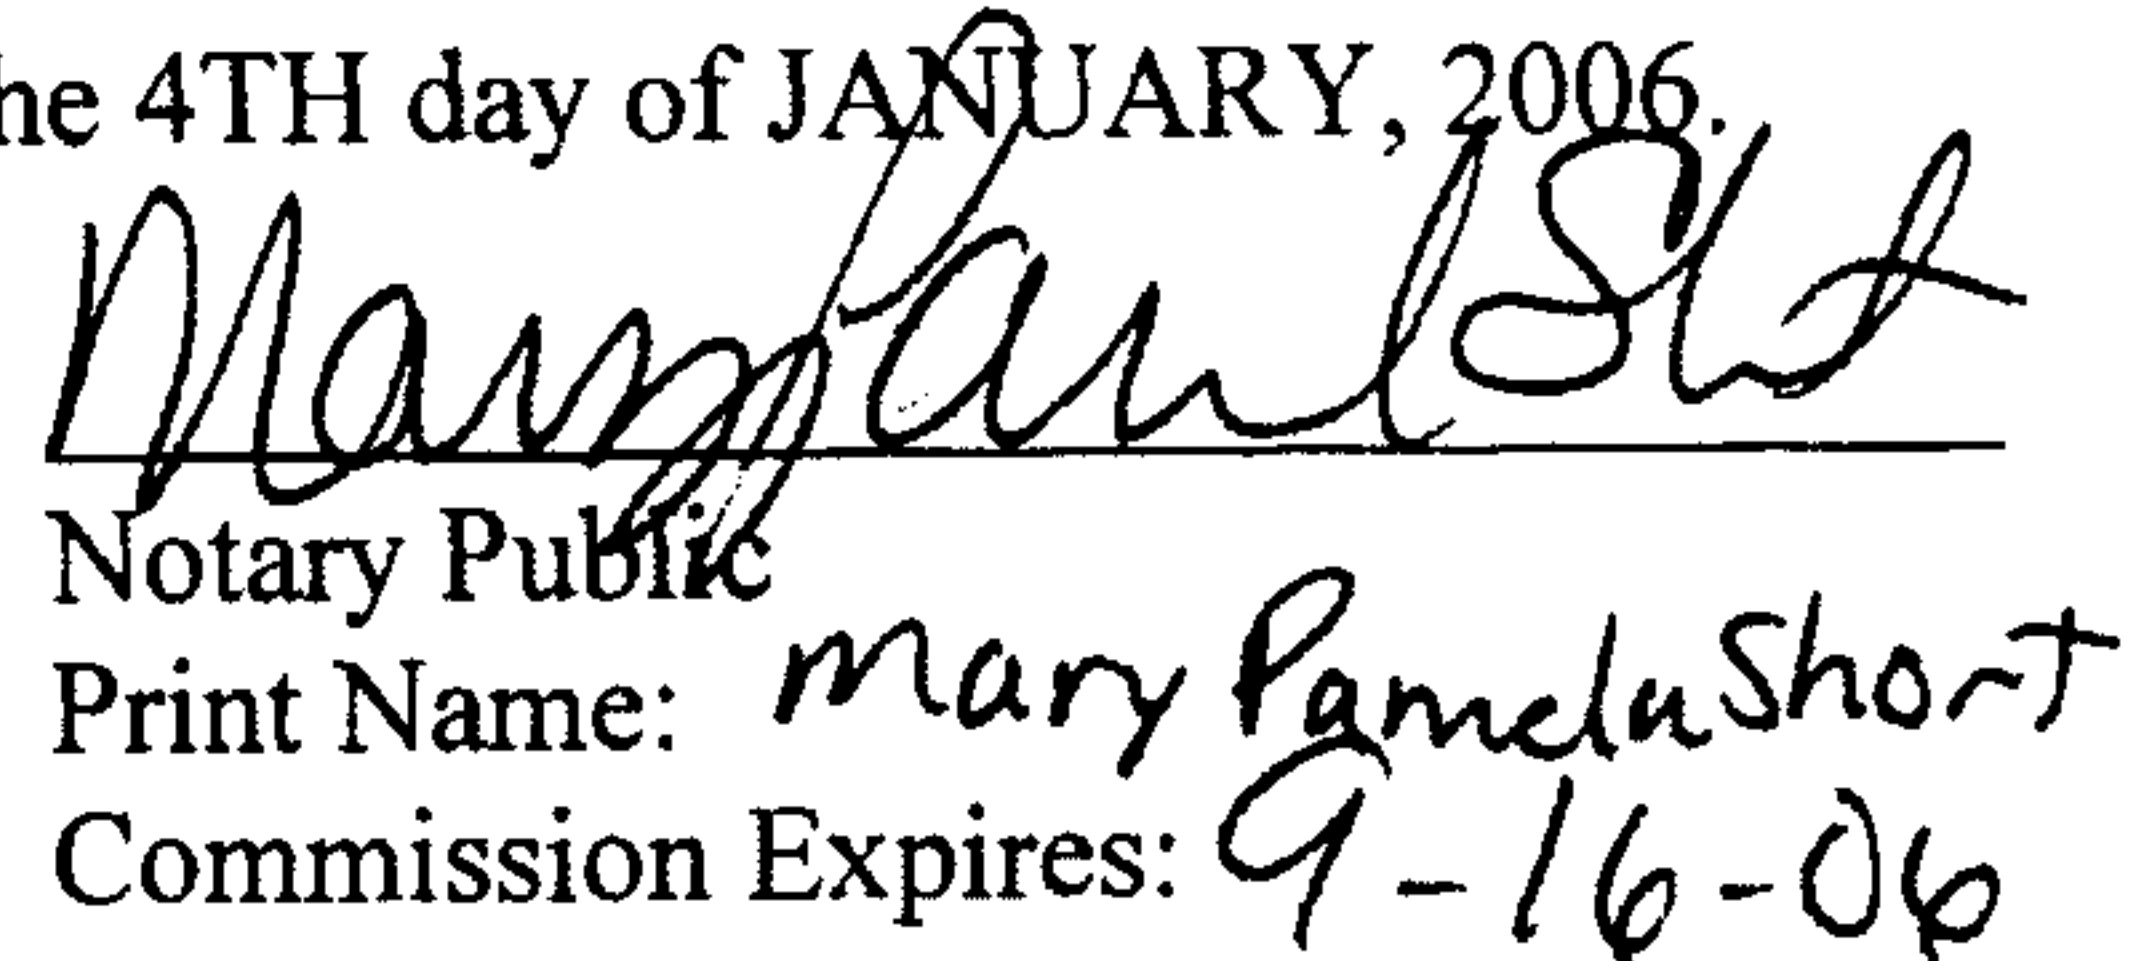 he 4TH day of JANUARY, 2006.
Mary Pamela Short
Notary Public
Print Name: Mary Pamela Short
Commission Expires: 9-16-06